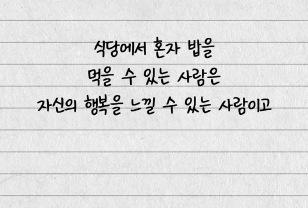 식당에서 혼자 밥을
먹을 수 있는 사람은
자신의 행복을 느낄 수 있는 사람이고